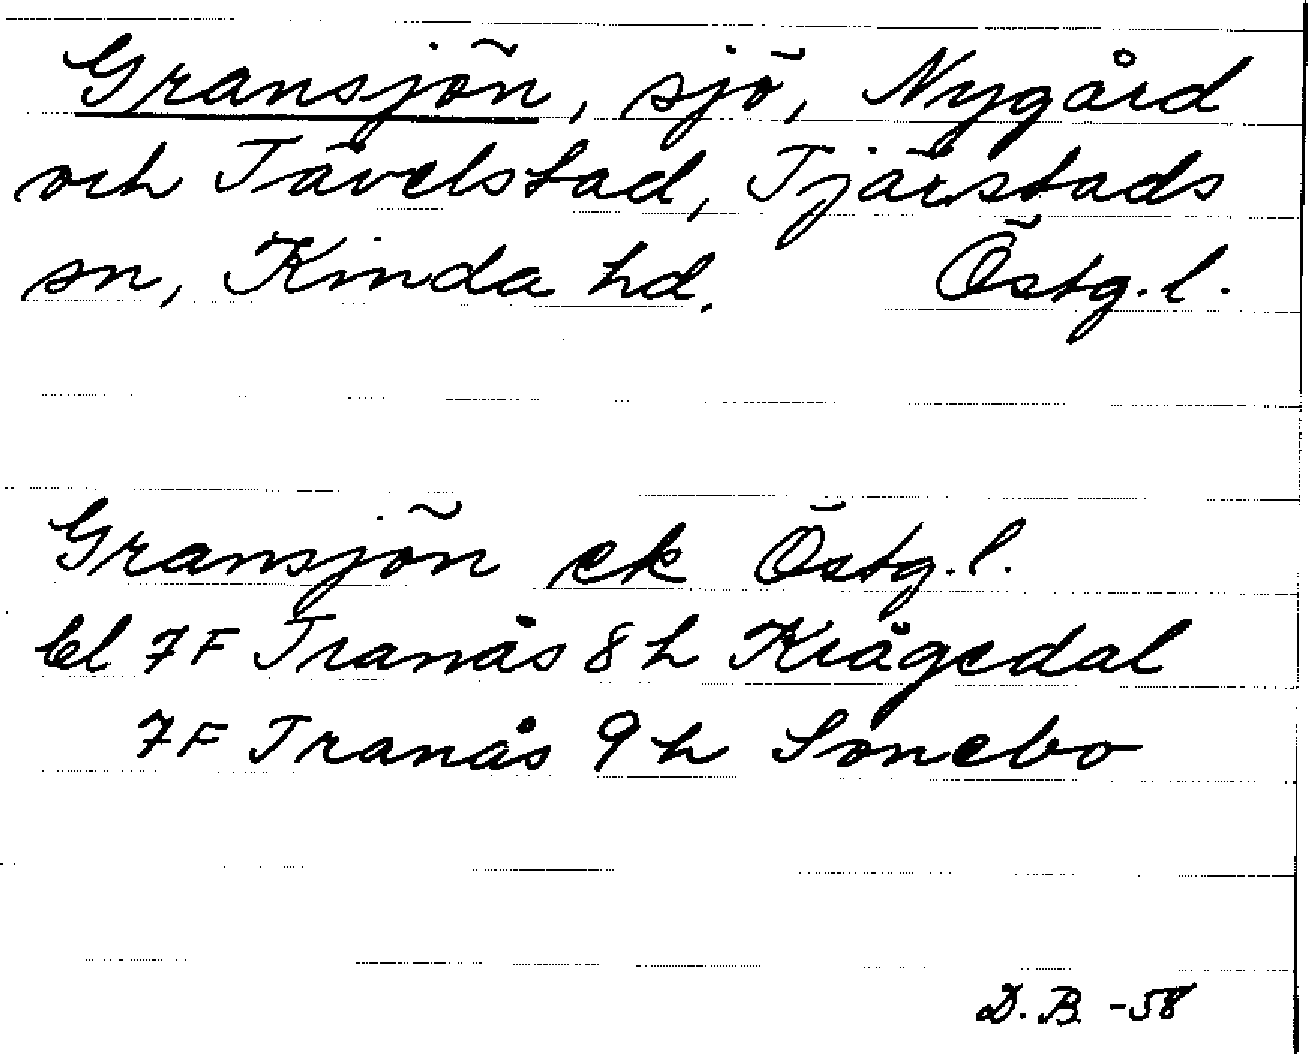 Gransjön, sjö, Nygård
och Tävelstad, Tjärstads
sn, Kinda hd. Östg.l.
Gransjön ek Östg.l.
bl 7F Tranås 8 h Krågedal
7F Tranås 9 h Sonebo
D.B. -58